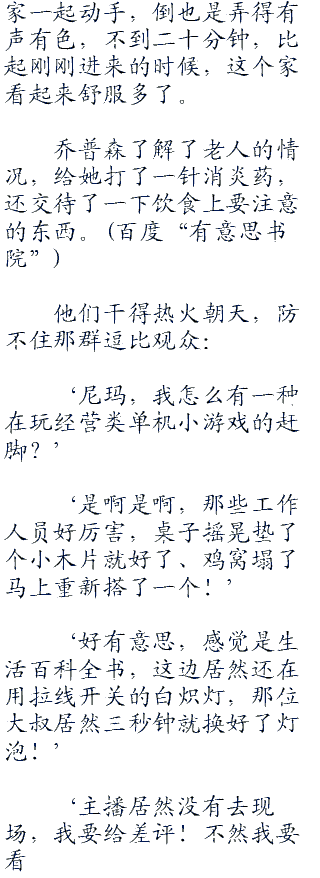 家一起动手，倒也是弄得有
声有色，不到二十分钟，比
起刚刚进来的时候，这个家
看起来舒服多了。
乔普森了解了老人的情
况，给她打了一针消炎药，
还交待了一下饮食上要注意
的东西。(百度“有意思书
院”)
他们干得热火朝天，防
不住那群逗比观众：
‘尼玛，我怎么有一种
在玩经营类单机小游戏的赶
脚？’
‘是啊是啊，那些工作
人员好厉害，桌子摇晃垫了
个小木片就好了、鸡窝塌了
马上重新搭了一个！’
‘好有意思，感觉是生
活百科全书，这边居然还在
用拉线开关的白炽灯，那位
大叔居然三秒钟就换好了灯
泡！’
‘主播居然没有去现
场，我要给差评！不然我要
看